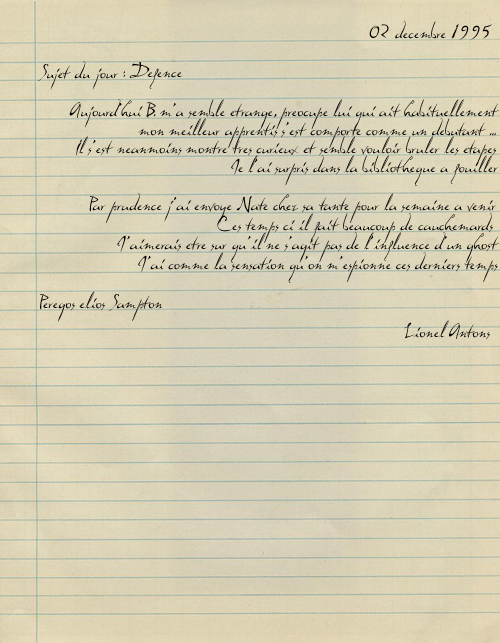 02 decembre 1995
Sujet du jour : Defence
Aujourd'hui B. m'a semble etrange, preocupe lui qui ait habituellement
mon meilleur apprentis s'est comporte comme un debutant ...
Il s'est neanmoins montre tres curieux et semble vouloir bruler les etapes
Je l'ai surpris dans la bibliotheque a fouiller
Par prudence j'ai envoye Nate chez sa tante pour la semaine a venir
Ces temps ci il fait beaucoup de cauchemards
J'aimerais etre sur qu'il ne s'agit pas de l'influence d'un ghost
J'ai comme la sensation qu'on m'espionne ces derniers temps
Peregos elios Sampton
Lionel Antons